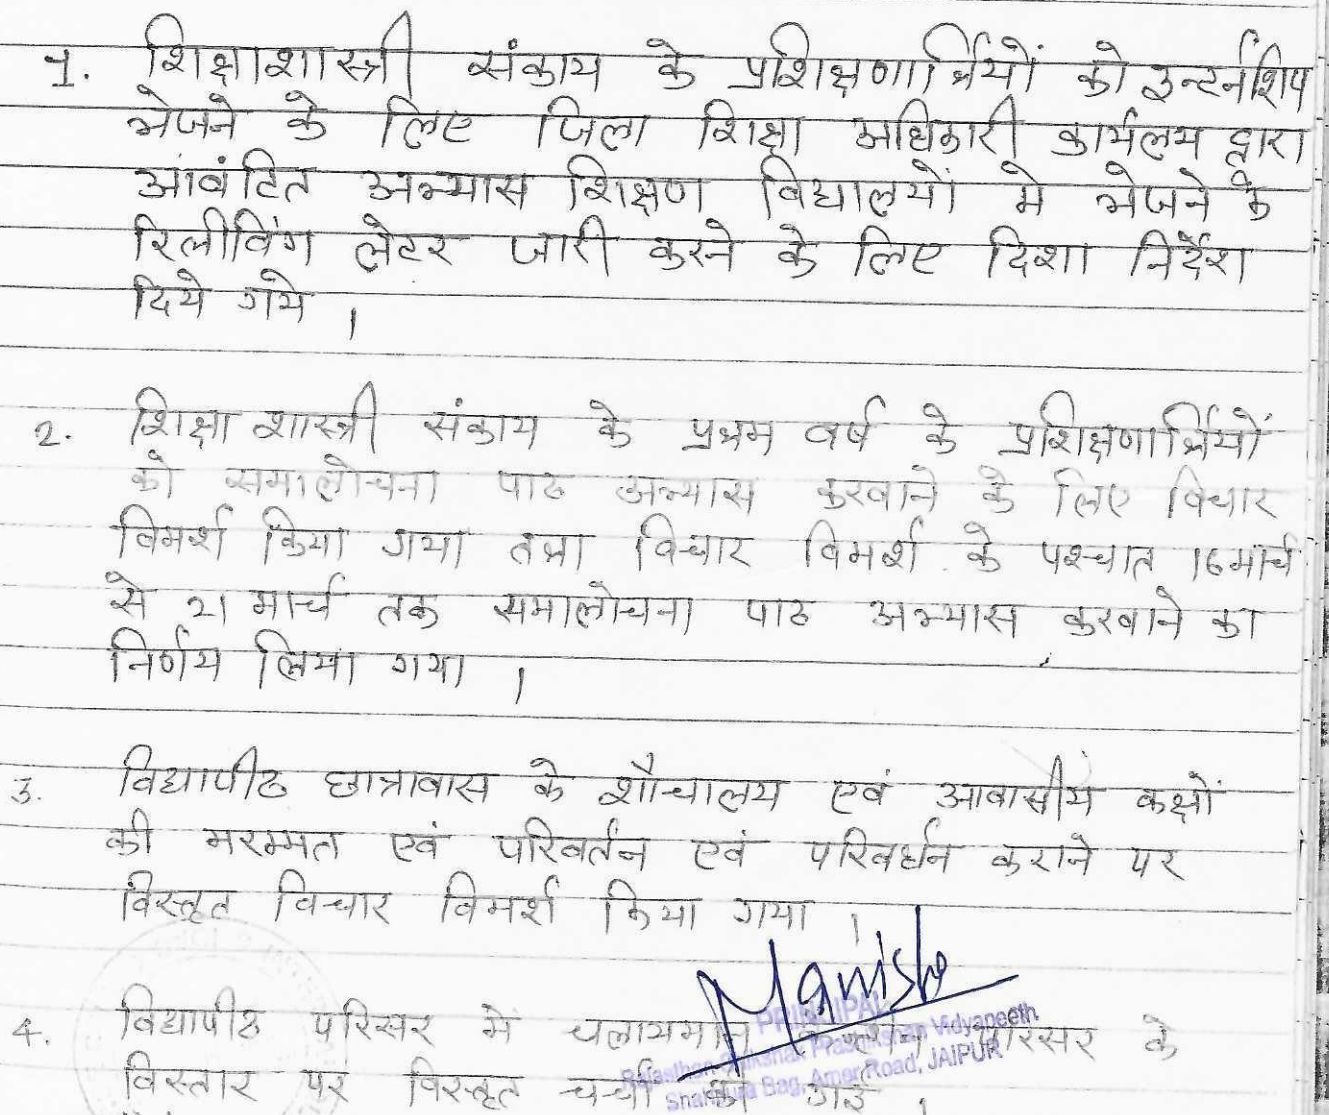 1. शिक्षाशास्त्री संकाय के प्रशिक्षणार्थियों को इन्टर्नशिप
भेजने के लिए जिला शिक्षा अधिकारी कार्यलय द्वारा
आवंटित अभ्यास शिक्षण विद्यालयों मे भेजने के
रिलीविंग लेटर जारी करने के लिए दिशा निर्देश
दिये गये ।
2. शिक्षा शास्त्री संकाय के प्रथम वर्ष के प्रशिक्षणार्थियों
को समालोचना पाठ अभ्यास करवाने के लिए विचार
विमर्श किया गया तथा विचार विमर्श के पश्चात 16 मार्च
से 21 मार्च तक समालोचना पाठ अभ्यास करवाने का
निर्णय लिया गया ।
3. विद्यापीठ छात्रावास के शौचालय एवं आवासीय कक्षों
की मरम्मत एवं परिवर्तन एवं परिवर्धन कराने पर
विस्तृत विचार विमर्श किया गया ।
Manisha
PRINCIPAL
4. विद्यापीठ परिसर में चलायमान परिसर के
Rajasthan Shikshak Prashikshan Vidyapeeth
विस्तार पर विस्तृत चर्चा की गई ।
Shahpura Bag, Amer Road, JAIPUR